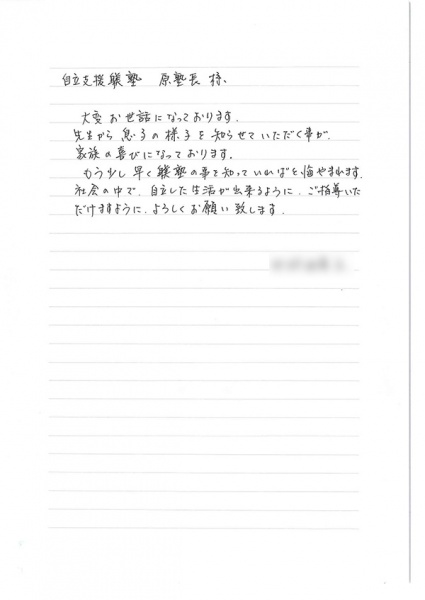 自立支援継塾 原塾長 様、
大変お世話になっております。
先生から息子の様子を知らせていただく事が、
家族の喜びになっております。
もう少し早く継塾の事を知っていればと悔やまれます。
社会の中で、自立した生活が出来るように、ご指導いた
だけますように、よろしくお願い致します。